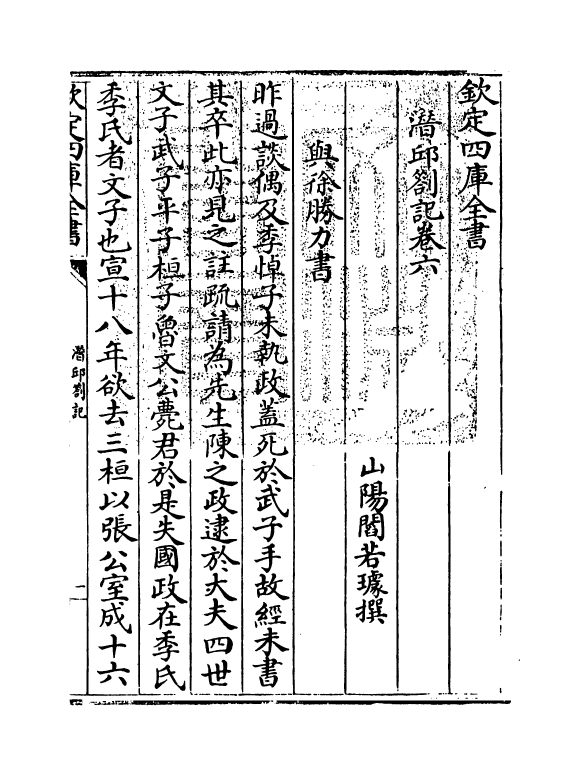 欽定四庫全書
潛邱劄記卷六
山陽閻若璩撰
與徐勝力書
昨過談偶及季悼子未執政蓋死於武子手故經未書
其卒此亦見之註疏請為先生陳之政逮於大夫四世
文子武子平子桓子魯文公薨君於是失國政在季氏
季氏者文子也宣十八年欲去三桓以張公室成十六
欽定四庫全書
潛邱劄記
一